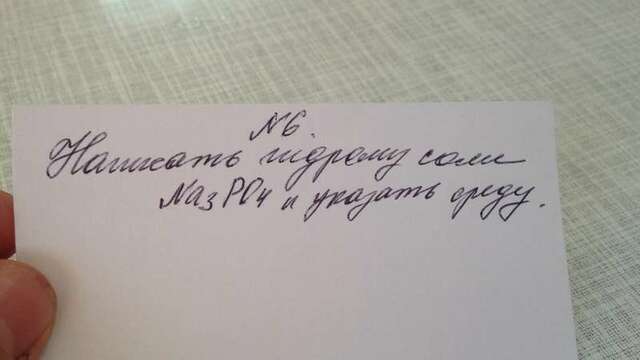 N6.
Написать гидролиз соли
Na3PO4 и указать среду.